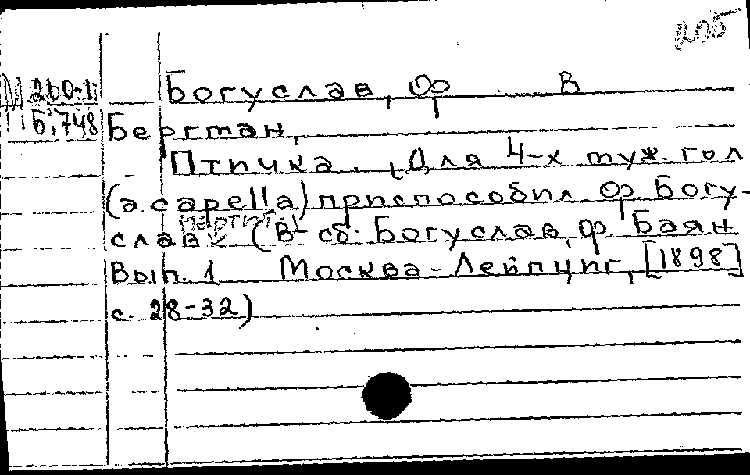 205
М 260-1 Богуслав, Ф В
Б.748 Бергман,
Птичка. [Для 4-х муж. гол
(a capella) приспособил Ф Богу-
слав (В сб: Богуслав, Ф Баян
Вып. 1 Москва-Лейпциг, [1898]
с. 28-32)